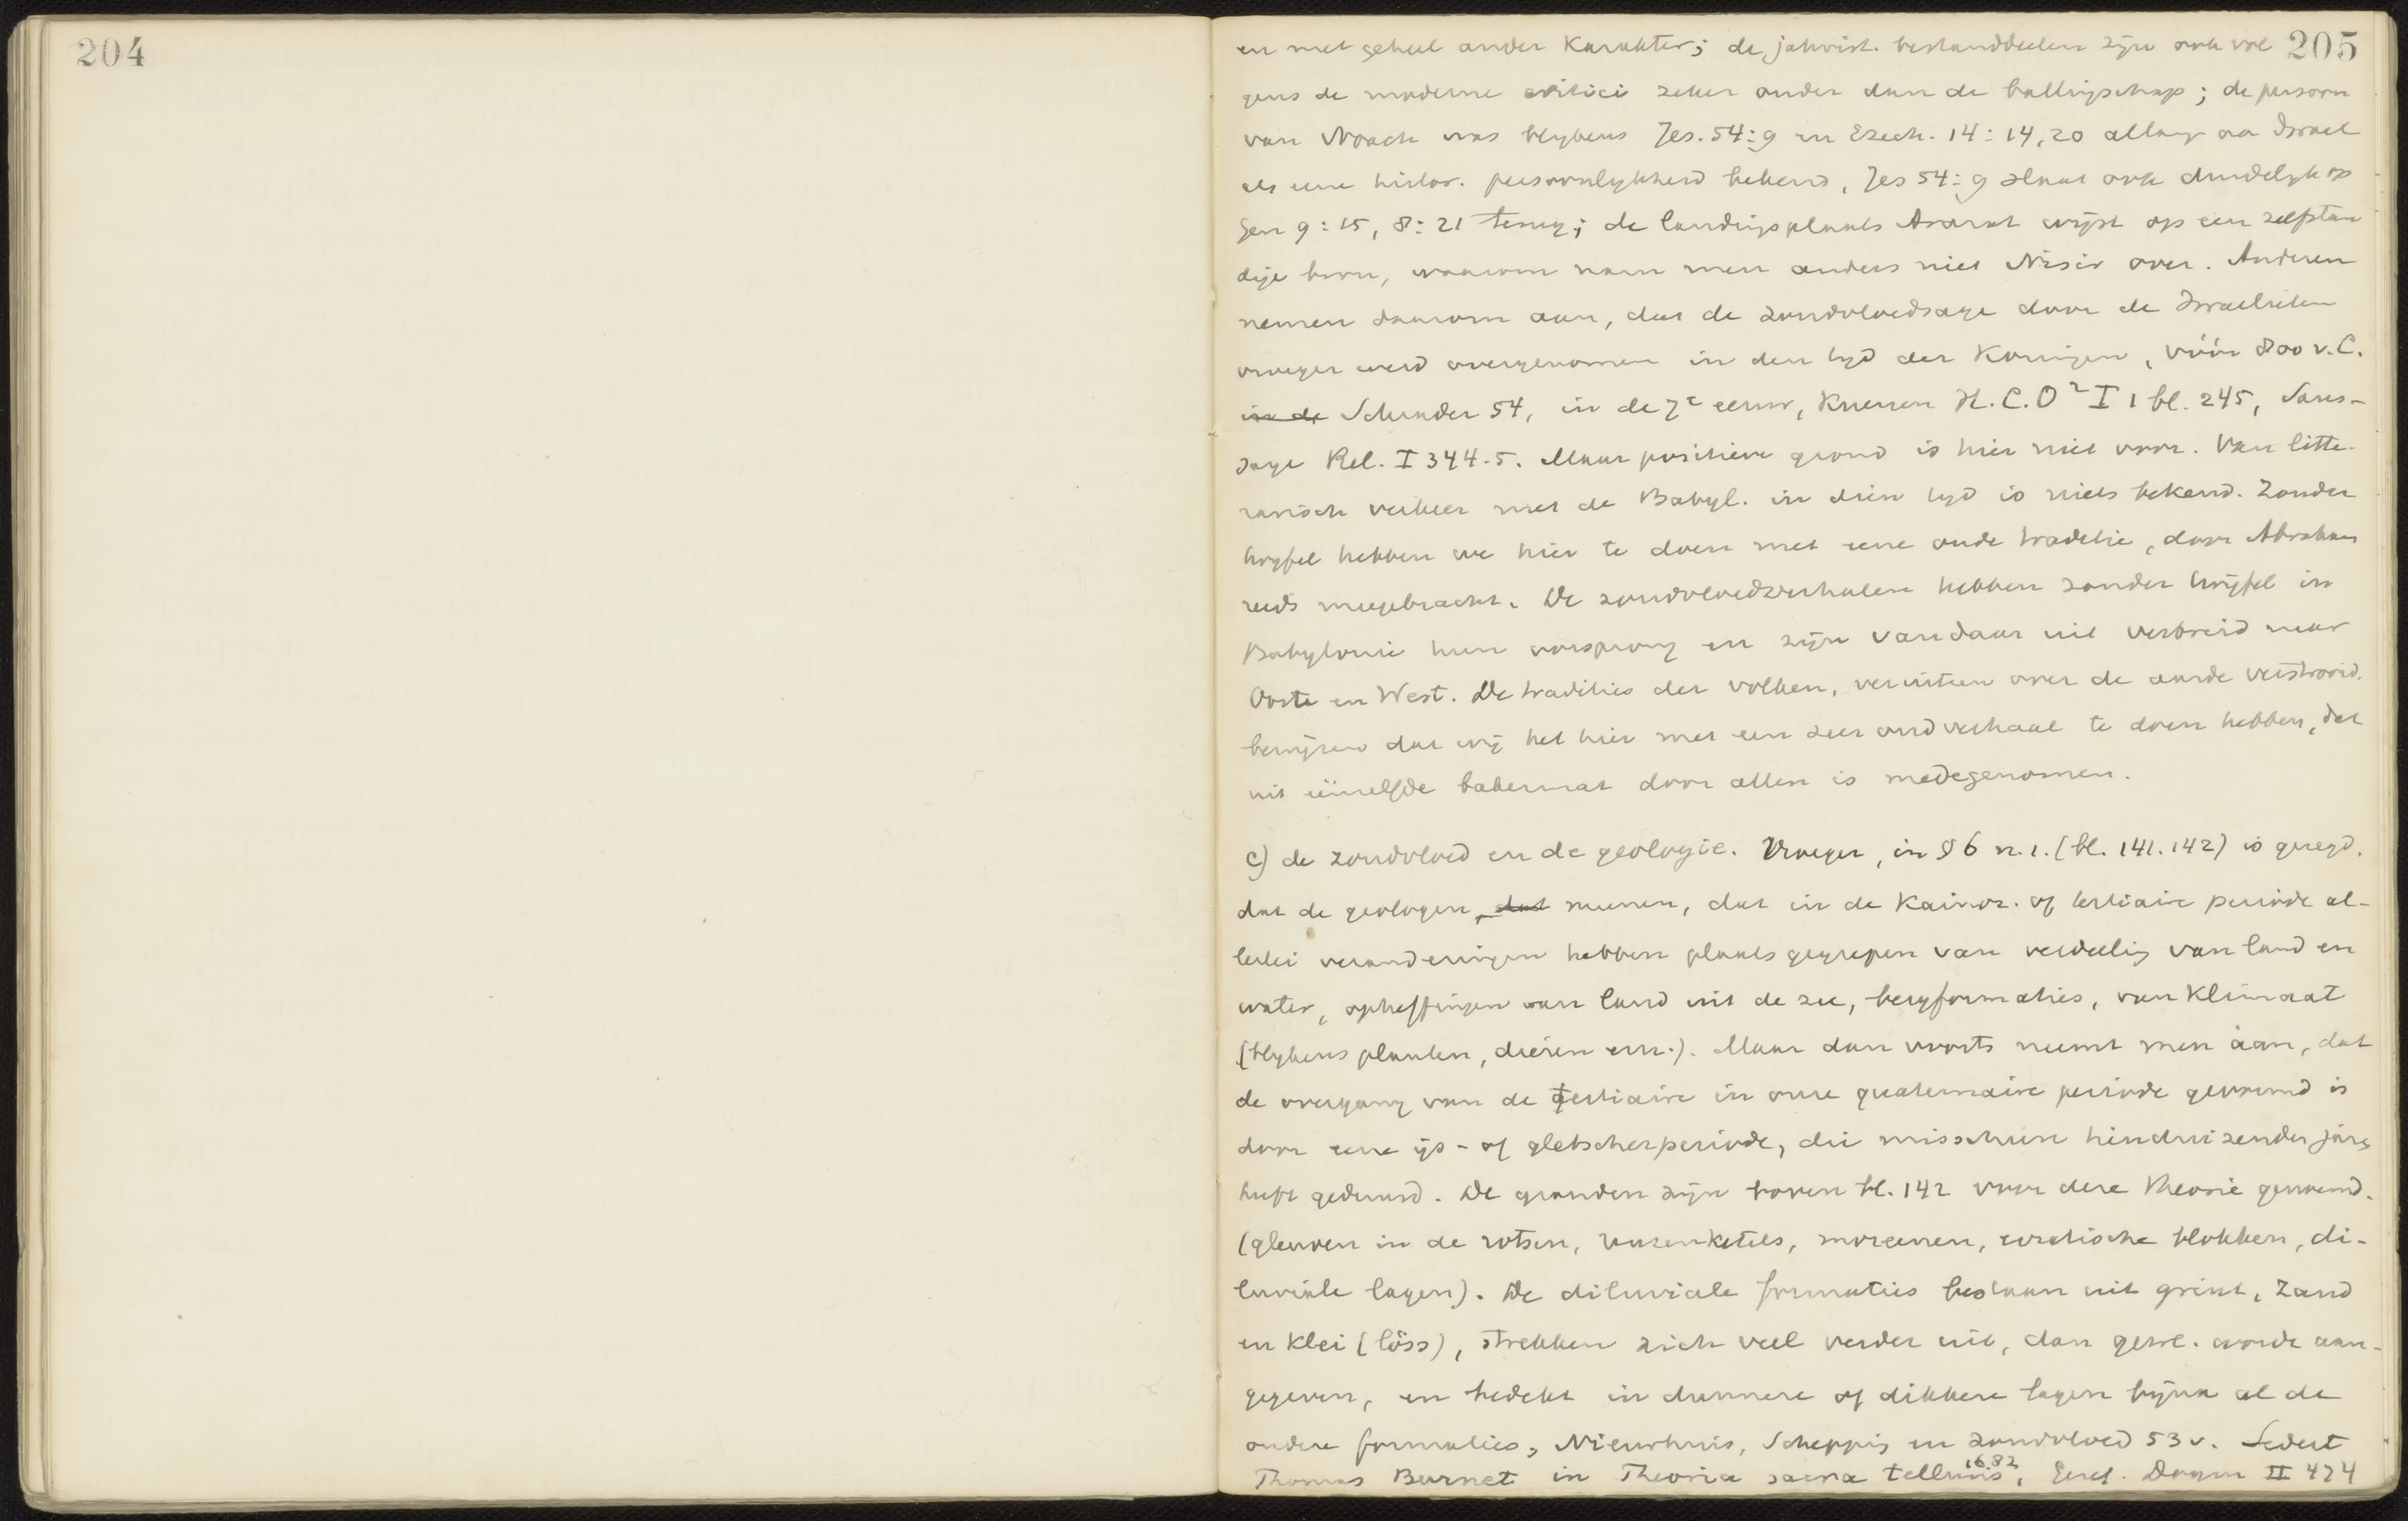 204
205
en met geheel ander karakter; de jahvist. bestanddeelen zijn ook vol
gens de moderne critici zeker ouder dan de ballingschap; de persoon
van Noach was blijkens Jes. 54:9 en Ezech. 14:14,20 allang aan Israel
als eene histor. persoonlijkheid bekend, Jes 54:9 slaat ook duidelijk op
Gen 9:15, 8:21 terug; de landingsplaats Ararat wijst op een zelfstan
dige bron, waarom nam men anders niet Nisir over. Anderen
nemen daarom aan, dat de zondvloedsage door de Israelieten
vroeger werd overgenomen in den tijd der Koningen, vóór 800 v.C.
in de Schrader 54, in de 7e eeuw, Kuenen H.C.O² I 1 bl. 245, Saus-
saye Rel. I 344-5. Maar positieve grond is hier niet voor. Van litte-
rarisch verkeer met de Babyl. in dien tijd is niets bekend. Zonder
twijfel hebben we hier te doen met eene oude traditie, door Abraham
reeds meegebracht. De zondvloedverhalen hebben zonder twijfel in
Babylonie hun oorsprong en zijn vandaar uit verbreid naar
Oost en West. De tradities der volken, verspreid over de aarde verstrooid,
bewijzen dat wij het hier met een zeer oud verhaal te doen hebben, dat
uit éénzelfde bakermat door allen is medegenomen.
c) de zondvloed en de geologie. Vroeger, in § 6 n.1. (bl. 141.142) is gezegd,
dat de geologen, dat meenen, dat in de Kainoz. of tertiaire periode al-
lerlei veranderingen hebben plaats gegrepen van verdeeling van land en
water, opheffingen van land uit de zee, bergformaties, van klimaat
(blijkens planten, dieren enz.). Maar dan voorts neemt men aan, dat
de overgang van de tertiaire in onze quaternaire periode gevormd is
door eene ijs- of gletscherperiode, die misschien tienduizenden jaren
heeft geduurd. De gronden zijn boven bl. 142 voor deze theorie genoemd.
(gleuven in de rotsen, reuzenketels, moreenen, erratische blokken, di-
luviale lagen). De diluviale formaties bestaan uit grint, zand
en klei (löss), strekken zich veel verder uit, dan gewl. wordt aan-
gegeven, en bedekt in dunnere of dikkere lagen bijna al de
andere formaties, Nieuwhuis, Schepping en zondvloed 53 v. Sedert
Thomas Burnet in Theoria sacra telluris 1682, Geref. Dogm II 474